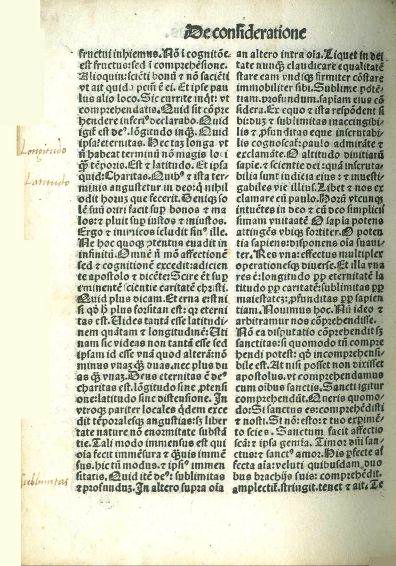 De consideratione
fructui inhiemus. Nõ ĩ cognitõne
est fructus: sed ĩ comprehẽsione.
Alioquin: sciẽti bonũ & nõ faciẽti
vt ait quidã pctm̃ ẽ ei. Et ipse pau
lus alio loco. Sic currite inqt: vt
comprehendatis. Quid sit cõpre
hendere inferi⁹ declarabo. Quid
igit̃ est de⁹. lõgitudo inq̃. Quid
ipsa? eternitas. Hec tã longa vt
nõ habeat terminũ nõ magis lo⁊
q̃ tẽporis. Est & latitudo. Et ipsa
quid: Charitas. Quib⁹ & ista ter
minis angustetur in deo: q̃ nihil
odit horum que fecerit. Deniq; so
lẽ suũ oriri facit sup bonos & ma
los: & pluit sup iustos & iniustos.
Ergo & inimicos icludit sin⁹ ille.
Ne hoc quoq; ptentus euadit in
infinitũ. Omnẽ ñ mõ affectionẽ
sed & cognitionẽ excedit: adiiciẽ
te apostolo & dicẽte: Scire et̃ sup
eminentẽ sciẽtie caritatẽ chr̃i
Quid plus dicam. Et erna est: ni
si qd̃ h̃ plus forsitan est: q̃ eterni
tas est. Vides tantã esse latitudi
nem quãtam & longitudinẽ. Uti
nam sic videas non tantã esse sed
ipsam id esse vnã quod alterã: nõ
minus vnaz q̃ duas. nec plus du
as q̃ vnaz. Deus eternitas ẽ de⁹
charitas est. lõgitudo sine ptensi
one: latitudo sine distensione. In
vtroq; pariter locales qdem exce
dit tẽporalesq; angustias: sz liber
tate nature nõ enormitate substã
tie. Tali modo immensus est qui
oĩa fecit in mẽsura & q̃uis immen
sus. hic tñ modus & ipsi⁹ immen
sitatis. Quid itẽ de⁹: sublimitas
& profundũ. In altero supra oĩa
an altero infra oĩa. Liquet in dei
tate nunq̃ claudicare equalitatẽ
stare eam vndiq; firmiter cõstare
immobiliter sibi. Sublime potẽ
tiam. profundum. sapiam eius cõ
sidera. Ex equo & ista respõdent si
bi: dum & sublimitas inaccingibi
lis & pfunditas eque inscrutabi
lis cognoscat̃: paulo admirãte &
exclamãte. O altitudo diuitiarũ
sapie & scientie dei: quã inscruta
bilia sunt iudicia eius & inuesti
gabiles vie illiu⁹. Libet & nos ex
clamare cũ paulo. Horũ vtcunq;
intuẽtes in deo & cũ deo simplicis
simam vnitatẽ O sapia potens
attingẽs vbiq; fortiter. O potẽ
tia sapiens: disponens oĩa suaui
ter. Res vna: effectus multiplex
operationesq; diuerse. Et illa vna
res ẽ: longitudo ppter eternitatẽ la
titudo ppter caritatẽ: sublimitas ppter
maiestatẽ: pfunditas ppter sapien
tiam. Nouimus hec. Nũ ideo &
arbitramur nos cõprehẽdisse.
Nõ ea disputatio cõprehendit sz
sanctitas: si quomodo tñ compre
hendi potest: qd̃ incomprehensi
bile est. At nisi posset non dixisset
apostolus. vt comprehendamus
cum oĩbus sanctis. Sancti igitur
comprehendũt. Queris quomo
do: Si sanctus es: comprehẽdisti
& nosti. Si nõ: esto: & tuo experimẽ
to scies. Sanctum facit affectio
sancta: & ipsa gemina. Timor dñi san
ctus: & sanct⁹ amor. His pfecte af
fecta aĩa: veluti quibusdam duo
bus brachijs suis: comprehẽdit.
amplectit̃. stringit. tenet & ait. Te
Longitudo
Latitudo
Sublimitas